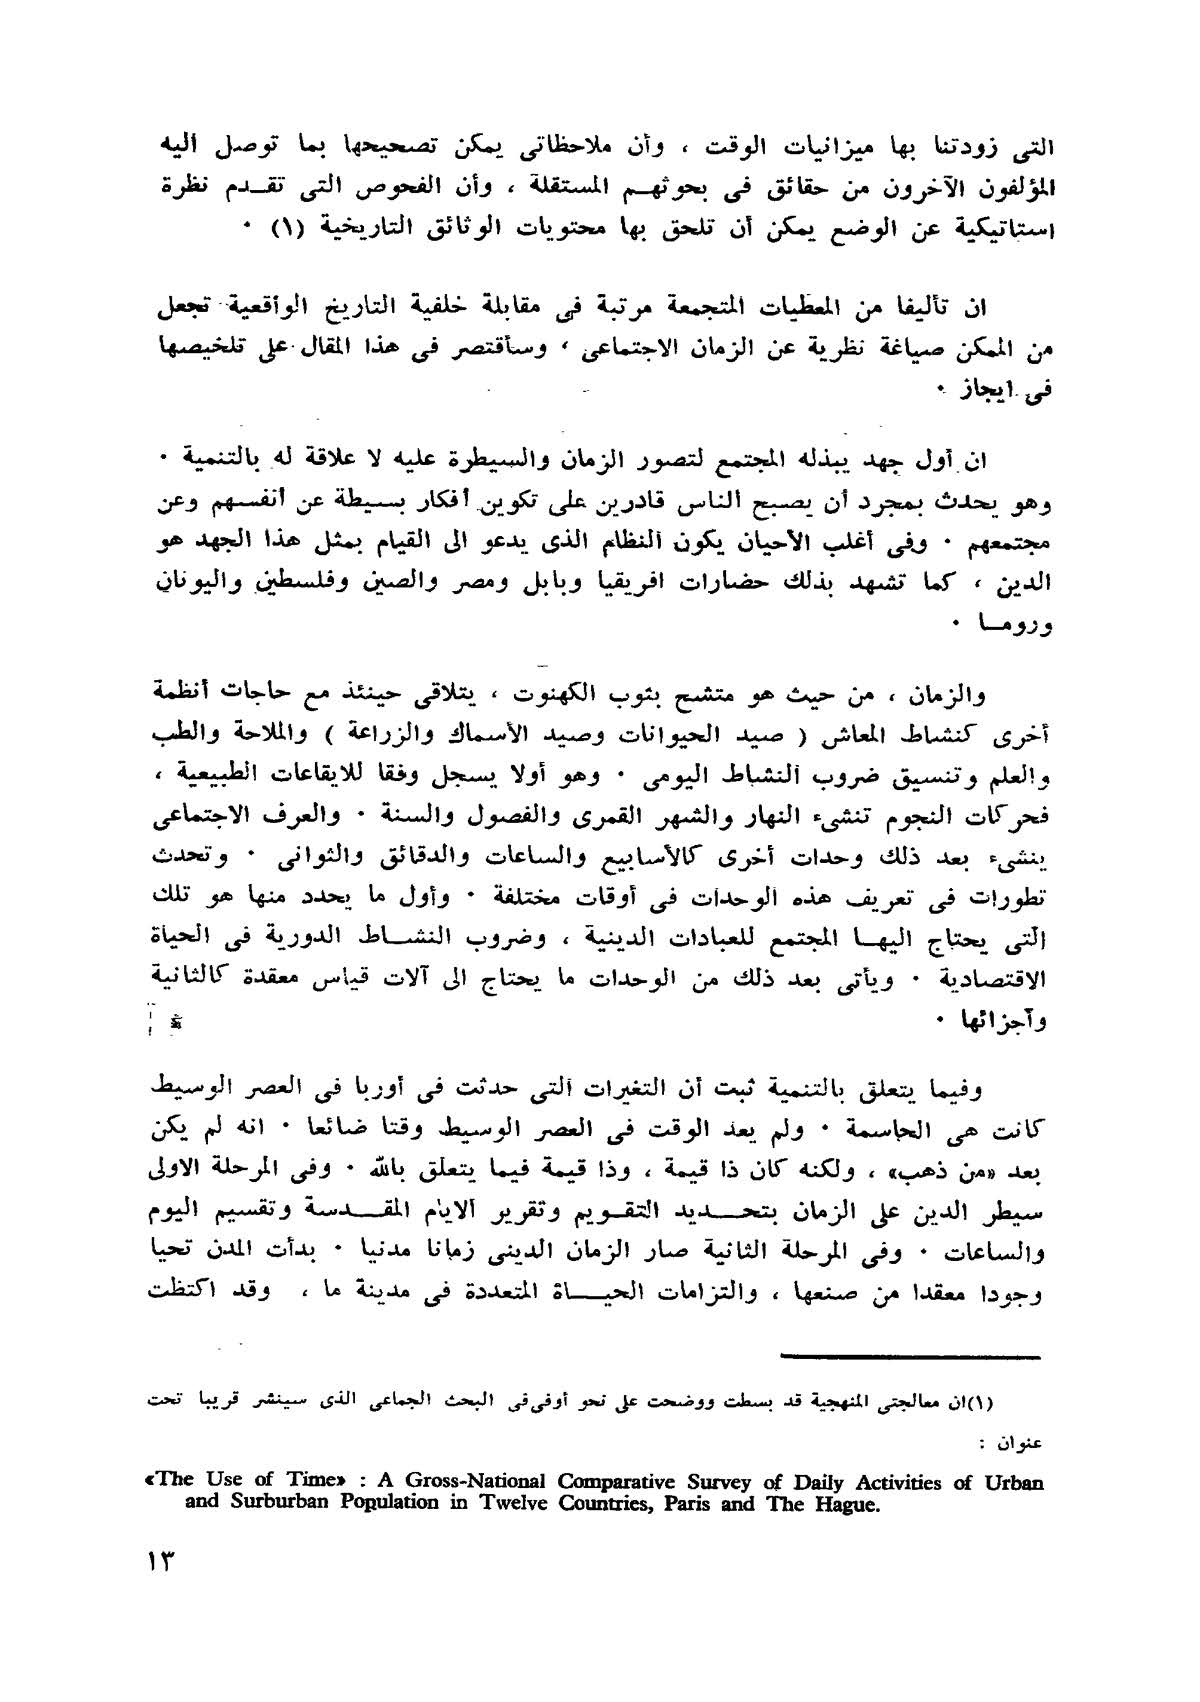 التى زودتنا بها ميزانيات الوقت ، وأن ملاحظاتى يمكن تصحيحها بما توصل اليه
المؤلفون الآخرون من حقائق فى بحوثهم المستقلة ، وأن الفحوص التى تقدم نظرة
استاتيكية عن الوضع يمكن أن تلحق بها محتويات الوثائق التاريخية (١) ٠
ان تأليفا من المعطيات المتجمعة مرتبة فى مقابلة خلفية التاريخ الواقعية تجعل
من الممكن صياغة نظرية عن الزمان الاجتماعى ، وسأقتصر فى هذا المقال على تلخيصها
فى ايجاز ٠
ان أول جهد يبذله المجتمع لتصور الزمان والسيطرة عليه لا علاقة له بالتنمية ٠
وهو يحدث بمجرد أن يصبح الناس قادرين على تكوين أفكار بسيطة عن أنفسهم وعن
مجتمعهم ٠ وفى أغلب الأحيان يكون النظام الذى يدعو الى القيام بمثل هذا الجهد هو
الدين ، كما تشهد بذلك حضارات افريقيا وبابل ومصر والصين وفلسطين واليونان
وروما ٠
والزمان ، من حيث هو متشح بثوب الكهنوت ، يتلاقى حينئذ مع حاجات أنظمة
أخرى كنشاط المعاش ( صيد الحيوانات وصيد الأسماك والزراعة ) والملاحة والطب
والعلم وتنسيق ضروب النشاط اليومى ٠ وهو أولا يسجل وفقا للايقاعات الطبيعية ،
فحركات النجوم تنشىء النهار والشهر القمرى والفصول والسنة ٠ والعرف الاجتماعى
ينشىء بعد ذلك وحدات أخرى كالأسابيع والساعات والدقائق والثوانى ٠ وتحدث
تطورات فى تعريف هذه الوحدات فى أوقات مختلفة ٠ وأول ما يحدد منها هو تلك
التى يحتاج اليها المجتمع للعبادات الدينية ، وضروب النشاط الدورية فى الحياة
الاقتصادية ٠ ويأتى بعد ذلك من الوحدات ما يحتاج الى آلات قياس معقدة كالثانية
وأجزائها ٠
وفيما يتعلق بالتنمية ثبت أن التغيرات التى حدثت فى أوربا فى العصر الوسيط
كانت هى الحاسمة ٠ ولم يعد الوقت فى العصر الوسيط وقتا ضائعا ٠ انه لم يكن
بعد «من ذهب» ، ولكنه كان ذا قيمة ، وذا قيمة فيما يتعلق بالله ٠ وفى المرحلة الاولى
سيطر الدين على الزمان بتحديد التقويم وتقرير الايام المقدسة وتقسيم اليوم
والساعات ٠ وفى المرحلة الثانية صار الزمان الدينى زمانا مدنيا ٠ بدأت المدن تحيا
وجودا معقدا من صنعها ، والتزامات الحياة المتعددة فى مدينة ما ، وقد اكتظت
(١)ان معالجتى المنهجية قد بسطت ووضحت على نحو أوفى فى البحث الجماعى الذى سينشر قريبا تحت
عنوان :
«The Use of Time» : A Gross-National Comparative Survey of Daily Activities of Urban
and Surburban Population in Twelve Countries, Paris and The Hague.
١٣